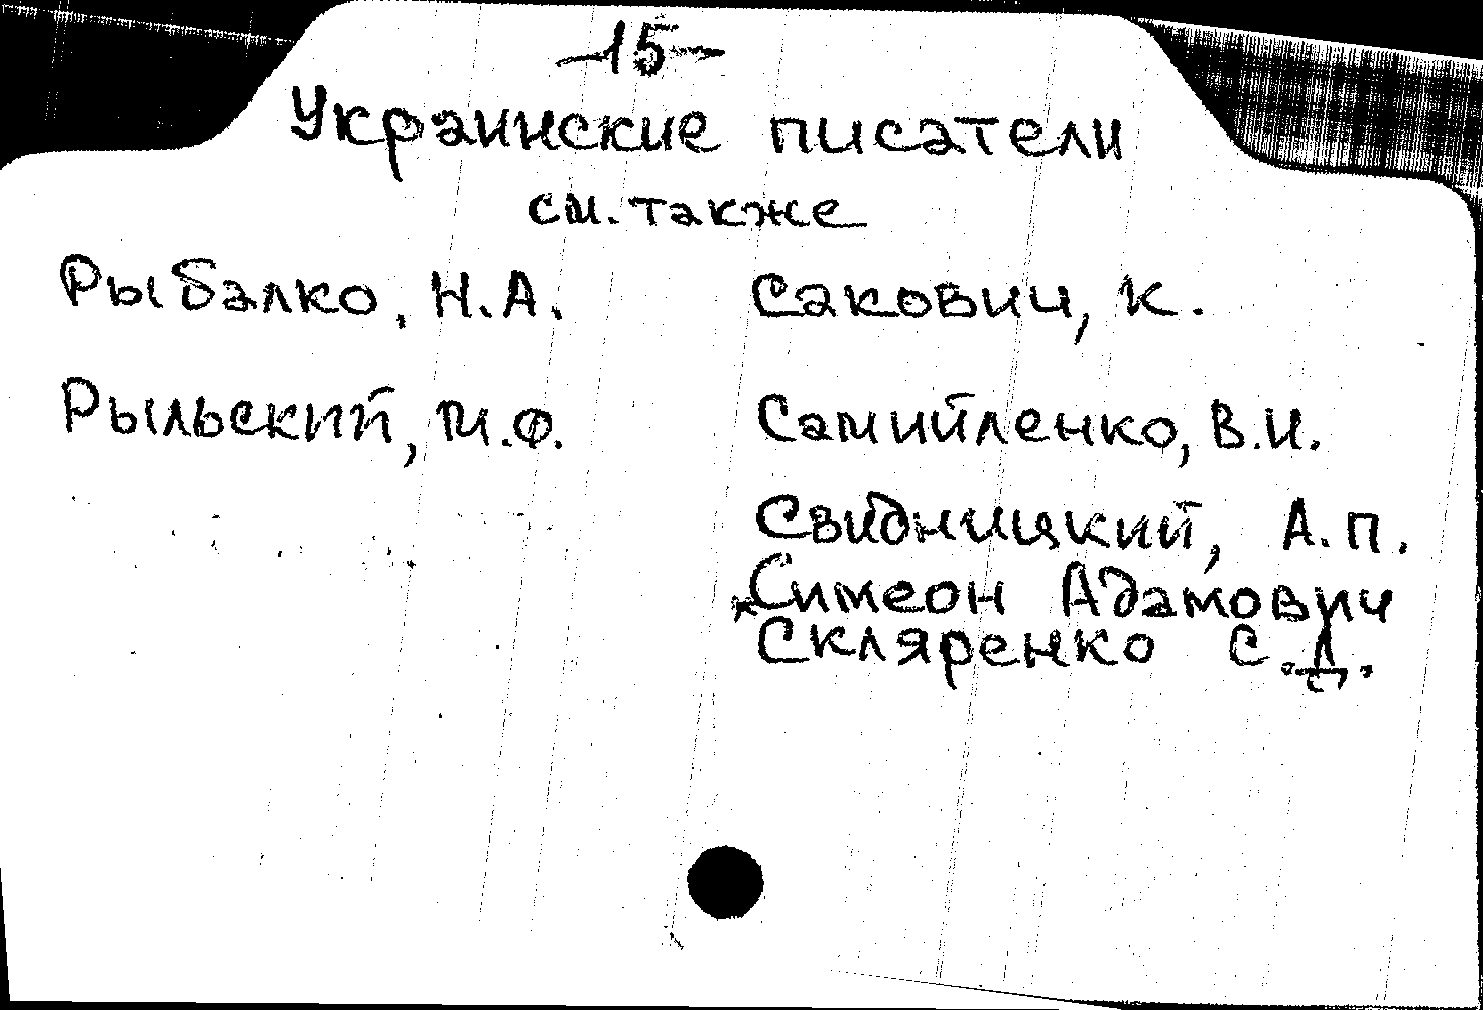 -15-
Украинские писатели
см. также
Рыбалко, Н.А.
Рыльский, М.Ф.
Сакович, К.
Самийленко, В.И.
Свидницкий, А.П.
Симеон Адамович
Скляренко С.Д.